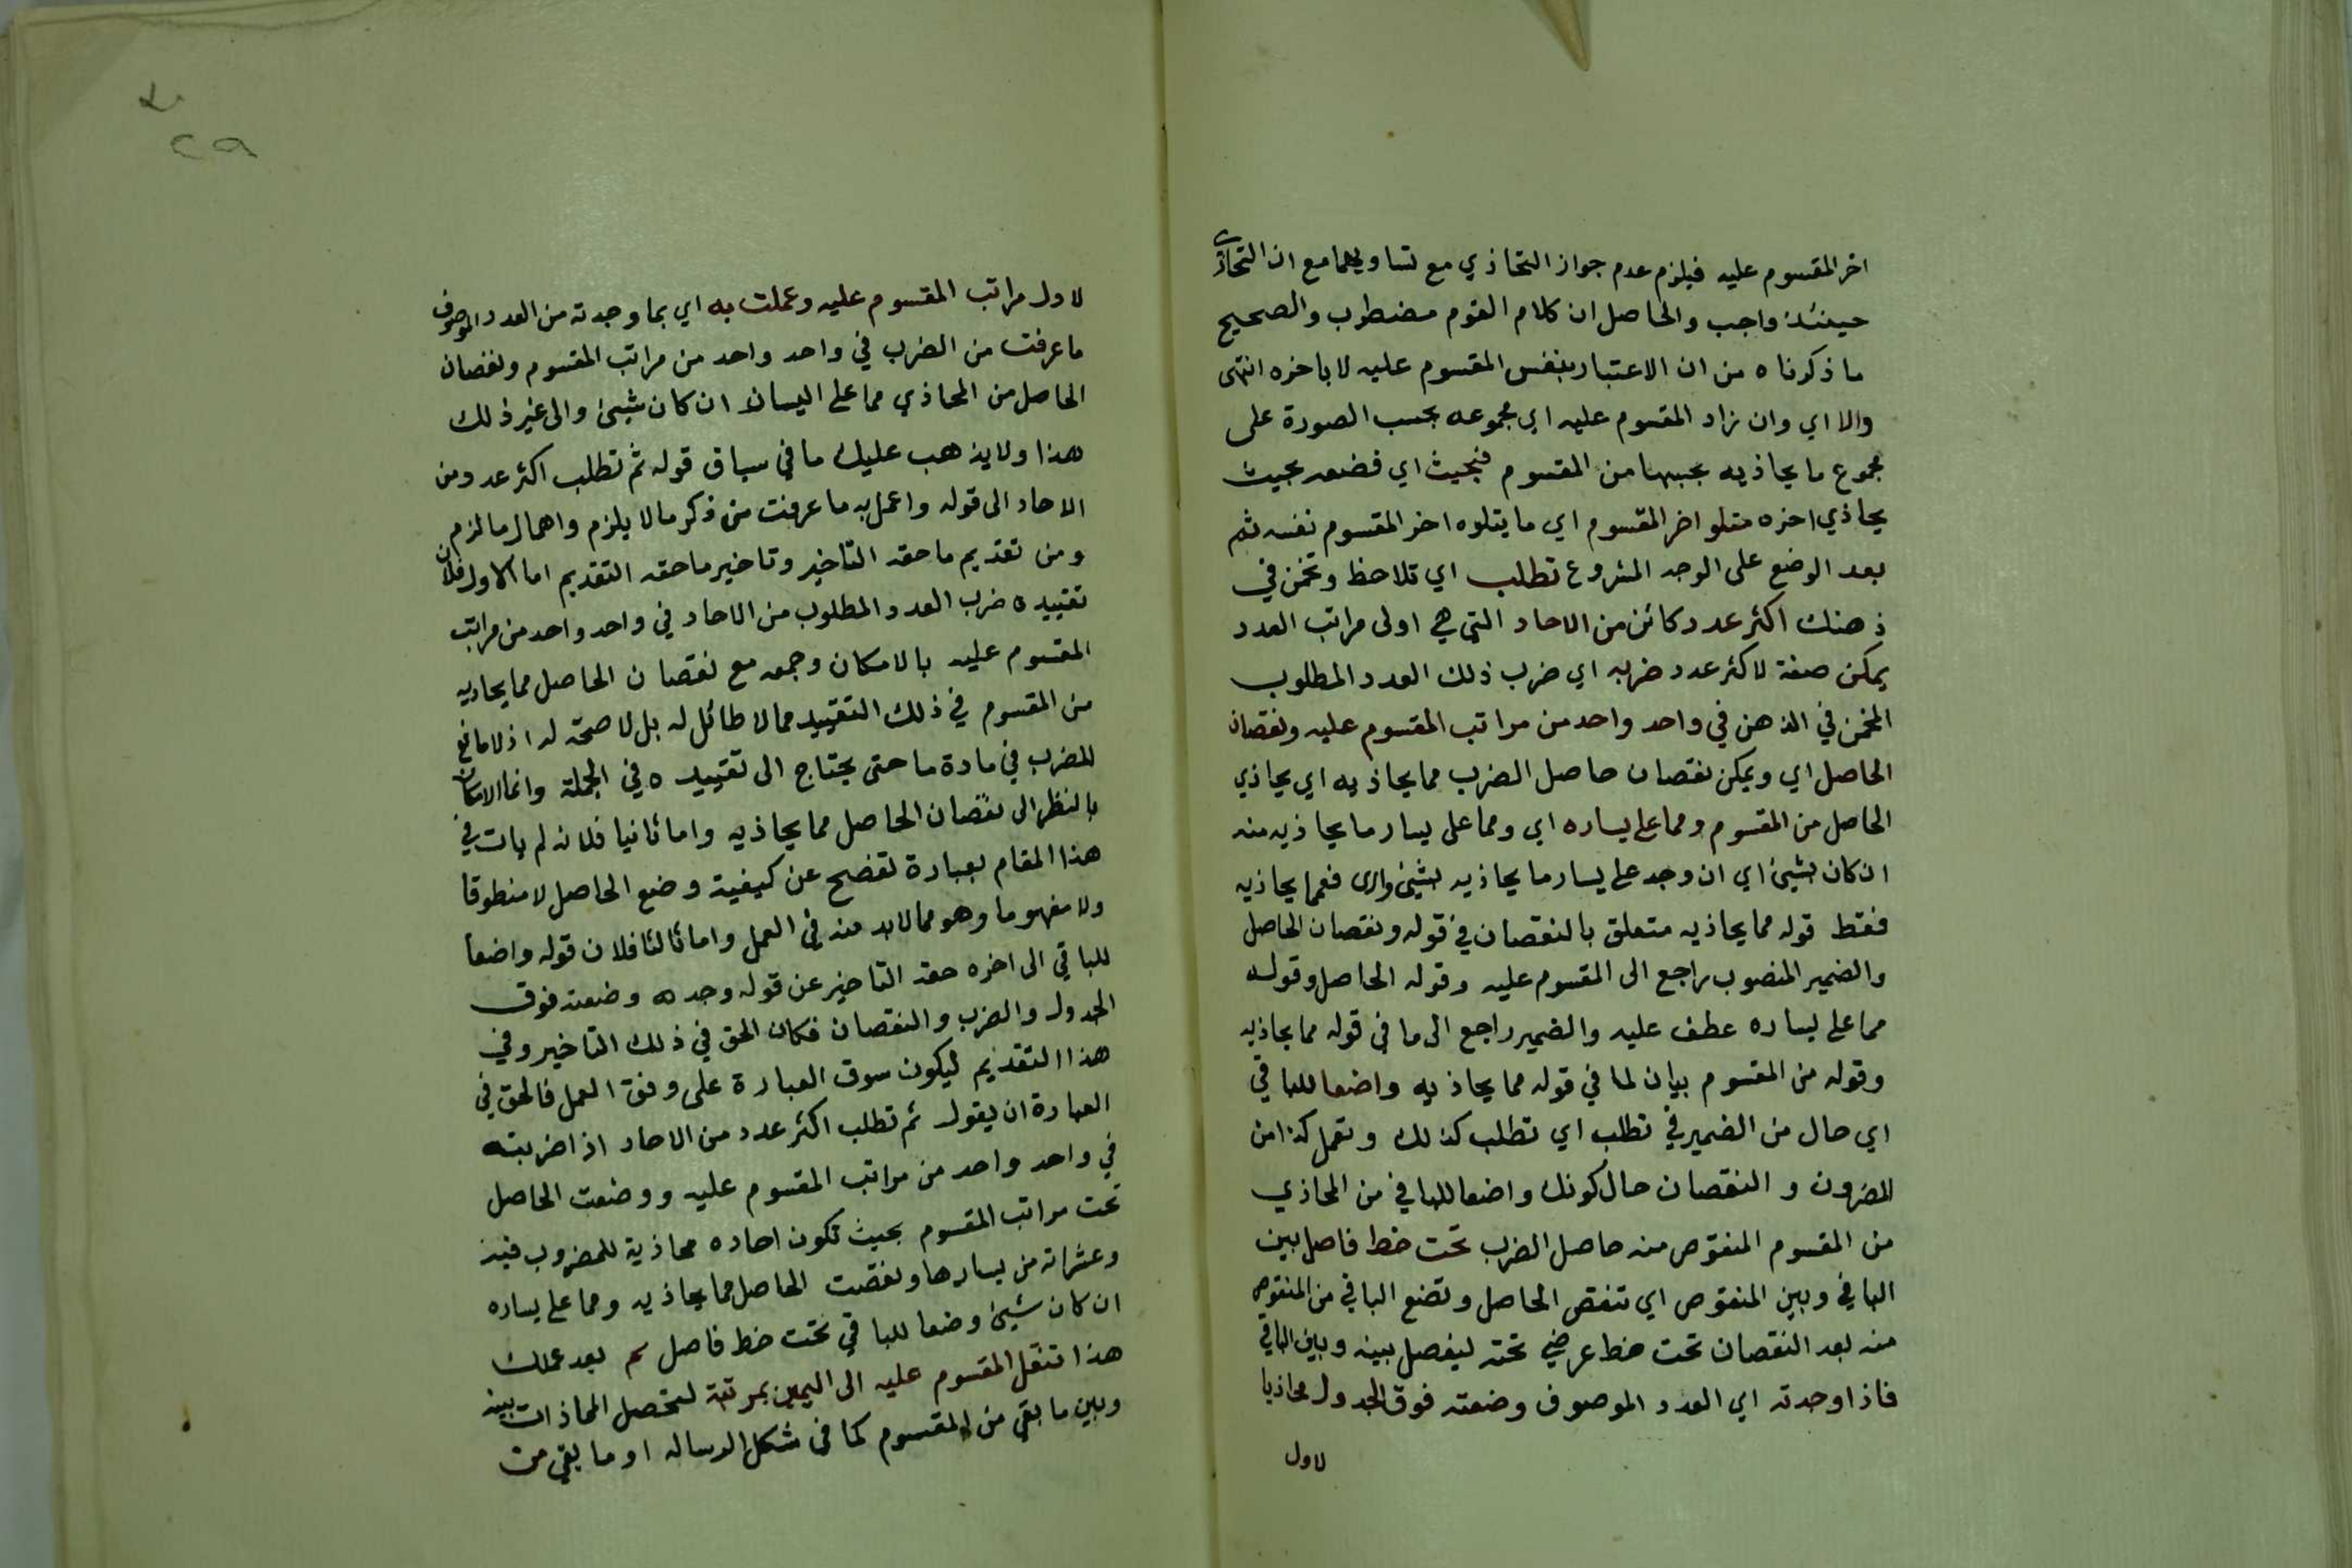 اخر المقسوم عليه فيلزم عدم جواز التحاذي مع تساويهما مع ان التحاذي
حينئذ واجب والحاصل ان كلام القوم مضطرب والصحيح
ما ذكرناه من ان الاعتبار بنفس المقسوم عليه لا باخره انتهى
والا اي وان زاد المقسوم عليه اي مجموعه بحسب الصورة على
مجموع ما يحاذيه بحسبها من المقسوم فبحيث اي فضعه بحيث
يحاذي اخره متلو اخر المقسوم اي ما يتلوه اخر المقسوم نفسه ثم
بعد الوضع على الوجه المشروع تطلب اي تلاحظ وتخمن في
ذهنك اكثر عدد كائن من الاحاد التي هي اولى مراتب العدد
يمكن صفة لاكثر عدد ضربه اي ضرب ذلك العدد المطلوب
المخمن في الذهن في واحد واحد من مراتب المقسوم عليه ونقصان
الحاصل اي ويمكن نقصان حاصل الضرب مما يحاذيه اي يحاذي
الحاصل من المقسوم ومما على يساره اي ومما على يسار ما يحاذيه منه
ان كان شيئ اي ان وجد على يسار ما يحاذيه شيئ والا فمما يحاذيه
فقط قوله مما يحاذيه متعلق بالنقصان في قوله ونقصان الحاصل
والضمير المنصوب راجع الى المقسوم عليه وقوله الحاصل وقوله
مما على يساره عطف عليه والضمير راجع الى ما في قوله مما يحاذيه
وقوله من المقسوم بيان لما في قوله مما يحاذيه واضعا للباقي
اي حال من الضمير في تطلب اي تطلب كذلك وتعمل كذا من
المضرون و النقصان حال كونك واضعا للباقي من المحاذي
من المقسوم المنقوص منه حاصل الضرب تحت خط فاصل بين
الباقي وبين المنقوص اي تنقص الحاصل وتضع الباقي من المنقوص
منه بعد النقصان تحت خط عرضي تحته ليفصل بينه وبين الباقي
فاذا وجدته اي العدد الموصوف وضعته فوق الجدول محاذيا
لاول
٢٩
لاول مراتب المقسوم عليه وعملت به اي بما وجدته من العدد الموصوف
ما عرفت من الضرب في واحد واحد من مراتب المقسوم ونقصان
الحاصل من المحاذي مما على اليسار ان كان شيئ والى غير ذلك
هذا ولا يذهب عليك ما في سياق قوله ثم تطلب اكثر عدد من
الاحاد الى قوله واعمل به ما عرفت من ذكر ما لا يلزم واهمال ما لزم
ومن تقديم ما حقه التاخير وتاخير ما حقه التقديم اما الاول فلان
تقييده ضرب العدد المطلوب من الاحاد في واحد واحد من مراتب
المقسوم عليه بالامكان وجمعه مع نقصان الحاصل مما يحاذيه
من المقسوم في ذلك التقييد مما لا طائل له بل لا صحة له اذ لا مانع
للضرب في مادة ما حتى يحتاج الى تقييده في الجملة وانما الامكان
بالنظر الى نقصان الحاصل مما يحاذيه واما ثانيا فلانه لم يات في
هذا المقام بعبارة تفضح عن كيفية وضع الحاصل لا منطوقا
ولا مفهوما وهو مما لابد منه في العمل واما ثالثا فلان قوله واضعا
للباقي الى اخره حقه التاخير عن قوله وجده وضعته فوق
الجدول والضرب والنقصان فكان الحق في ذلك التاخير وفي
هذا التقديم ليكون سوق العبارة على وفق العمل فالحق في
العبارة ان يقول ثم تطلب اكثر عدد من الاحاد اذا ضربته
في واحد واحد من مراتب المقسوم عليه ووضعت الحاصل
تحت مراتب المقسوم بحيث تكون احاده محاذية للمضروب فيه
وعشراته من يسارها ونقصت الحاصل مما يحاذيه ومما على يساره
ان كان شيئ وضعا للباقي تحت خط فاصل ثم بعد عملك
هذا تنقل المقسوم عليه الى اليمين بمرتبة لتحصل المحاذات بينه
وبين ما بقي من المقسوم كما في شكل الرساله او ما بقي من